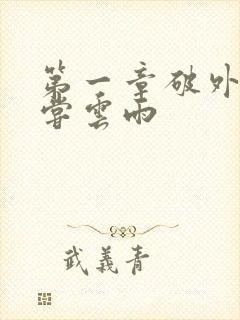 第一章破外
嘗雲雨
武義青